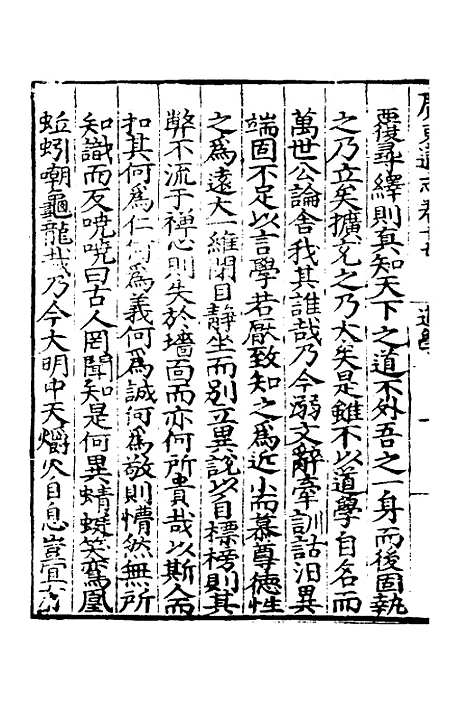 覆尋繹則真知天下之道不外吾之一身而後固執
之乃立矣擴充之乃大矣是雖不以道學自名而
萬世公論舍我其誰哉乃今溺文辭牽訓詁汨異
端固不足以言學若厭致知之為近小而慕尊德性
之為遠大一維閉目靜坐而別立異說以自標榜則其
弊不流于禪心則失於墻面而亦何所貴哉以斯人而
扣其何為仁何為義何為誠何為敬則懵然無所
知識而反哓哓曰古人罔聞知是何異蜻蜓笑鸞鳳
蚯蚓嘲龜龍哉乃今大明中天爝火自息豈直